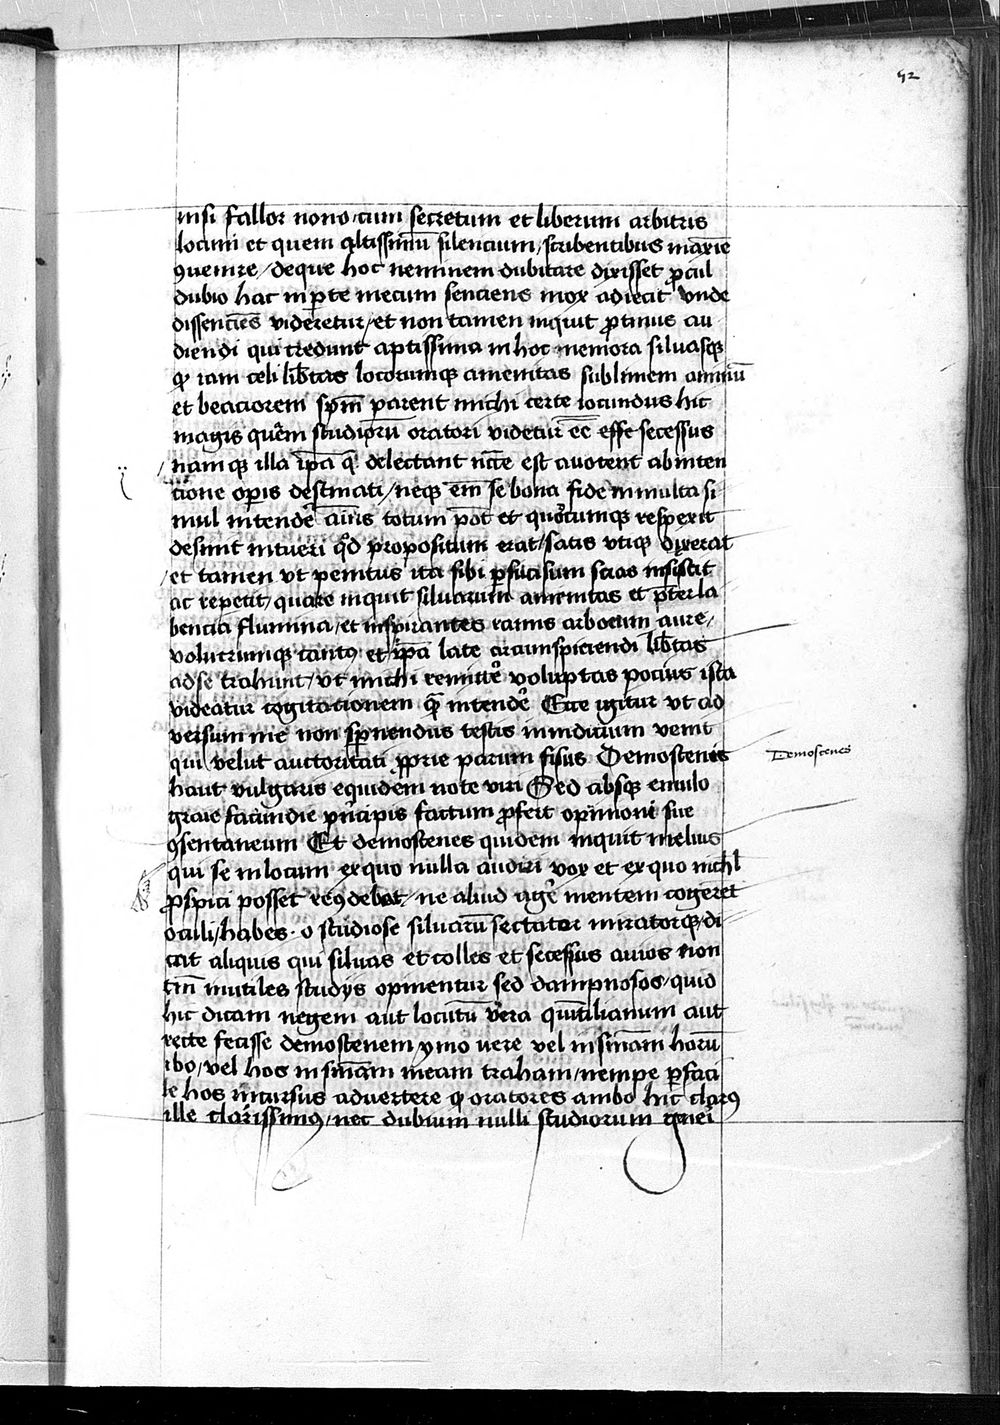 52
nisi fallor nono, cum secretum et liberum arbitris
locum et quem altissimū silencium, scribentibus maxīe
ꝯuenire, deque hoc neminem dubitare dixisset ꝓcul
dubio hac in ꝑte mecum senciens mox adiecit vnde
dissenciēs videretur, et non tamen inquit ꝓtinus au
diendi qui credunt aptissima in hoc nemora siluasqꝫ
ꝙ iam celi lib̄tas locorumqꝫ amenitas sublimem animū
et beaciorem sp̄m parent michi certe iocundus hic
magis quem studiorū oratori videtur eē esse secessus
namqꝫ illa ip̄a q̄ delectant nc̄ē est auocent ab inten
cione oꝑis destinati, neqꝫ em̄ se bona fide in multa si
mul intendē aīus totum pōt et quocumqꝫ respexit
desinit intueri qd̄ propositum erat, satis vtiqꝫ dixerat
et tamen vt penitus ita sibi ꝑsuasum scias insistit
ac repetit, quare inquit siluarum amenitas et p̄terla
bencia flumina, et inspirantes ramis arborum aure,
volucrumqꝫ cantꝰ et ip̄a late circumspiciendi lib̄tas
ad se trahunt, vt michi remittē voluptas pocius ista
videatur cogitacionem q̄ intendē Ecce igitur vt ad
versum me non sp̄nendus testis in iudicium venit
qui velut auctoritati ꝓprie parum fisus Demostenis
Demostenes
haut vulgaris equidem note viri Sed absqꝫ emulo
graie facundie pⁱncipis factum ꝓfert opinioni sue
ꝯsentaneum Et demostenes quidem inquit melius
qui se in locum ex quo nulla audiri vox et ex quo nichl
ꝓspici posset recꝯdebat, ne aliud agē mentem cogeret
oculi, habes o studiose siluarū sectator miratorqꝫ, di
cat aliquis qui siluas et colles et secessus auios non
tm̄ inutiles studijs opinentur sed dampnosos, quid
hic dicam negem aut locutū vera quintilianum aut
recte fecisse demostenem, ymo vere vel in sn̄iam horū
ibo, vel hos in sn̄iam meam traham, nempe ꝑfaci
le hos incursus aduertere ꝙ oratores ambo hic clarꝰ
ille clarissimꝰ, nec dubium nulli studiorum gnei